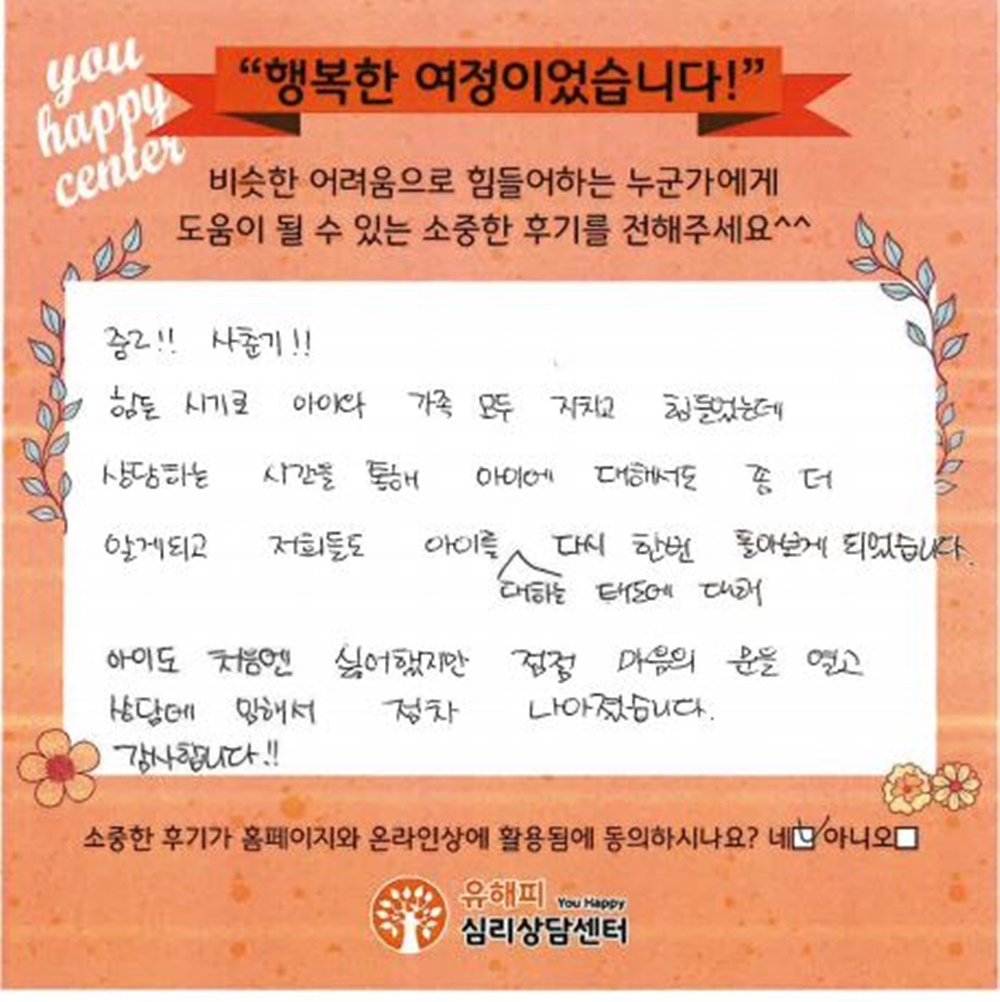 you
happy
center
“행복한 여정이었습니다!”
비슷한 어려움으로 힘들어하는 누군가에게
도움이 될 수 있는 소중한 후기를 전해주세요^^
중2!! 사춘기!!
힘든 시기로 아이와 가족 모두 지치고 힘들었는데
상담하는 시간을 통해 아이에 대해서도 좀 더
알게되고 저희들도 아이를 다시 한번 돌아보게 되었습니다.
대하는 태도에 대해
아이도 처음엔 싫어했지만 점점 마음의 문을 열고
상담에 임해서 점차 나아졌습니다.
감사합니다!!
소중한 후기가 홈페이지와 온라인상에 활용됨에 동의하시나요? 네 아니오
유해피 You Happy
심리상담센터